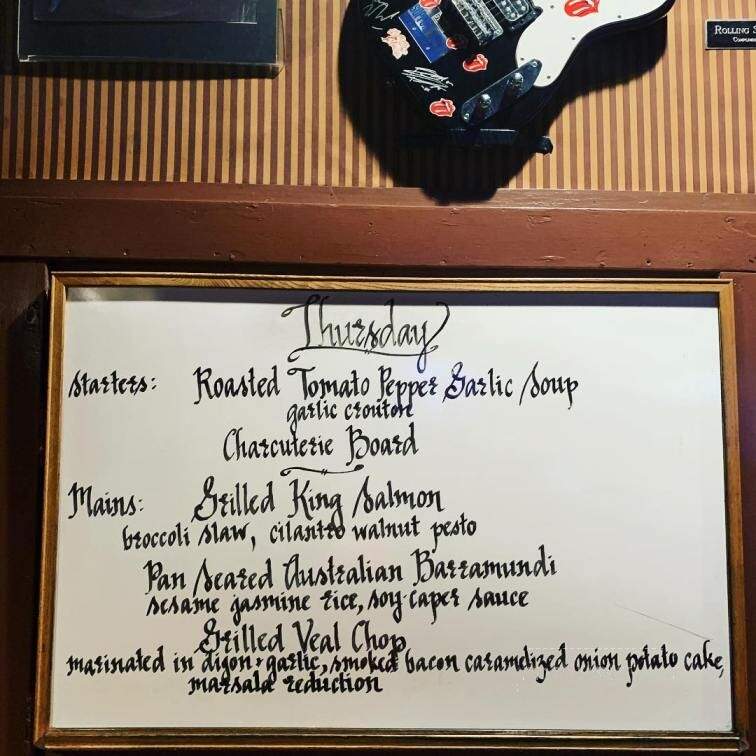 ROLLING S
Thursday
Starters: Roasted Tomato Pepper Garlic Soup
garlic crouton
Charcuterie Board
Mains: Grilled King Salmon
broccoli slaw, cilantro walnut pesto
Pan Seared Australian Barramundi
sesame jasmine rice, soy-caper sauce
Grilled Veal Chop
marinated in dijon + garlic, smoked bacon caramelized onion potato cake,
marsala reduction